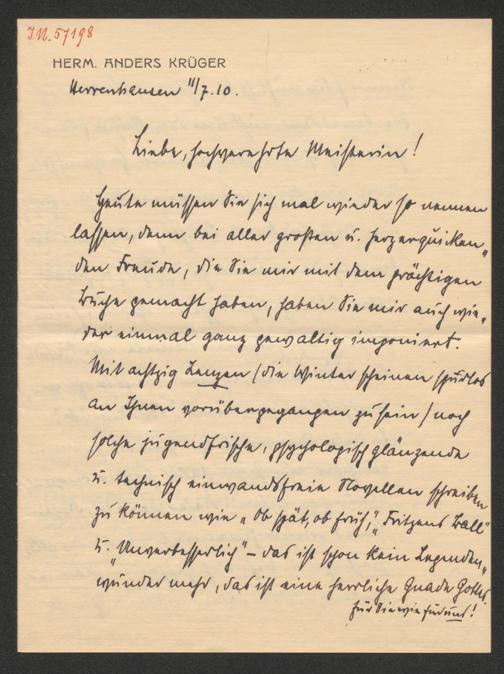 J.N. 57198
HERM. ANDERS KRÜGER
Herrenhausen 11/7.10.
Liebe, hochverehrte Meisterin!
Heute müssen Sie sich mal wieder so nennen
lassen, denn bei aller großen u. herzerquicken„
den Freude, die Sie mir mit dem prächtigen
Buche gemacht haben, haben Sie mir auch wie„
der einmal ganz gewaltig imponiert.
Mit achtzig Lenzen / die Winter scheinen spurlos
an Ihnen vorübergegangen zu sein / noch
solche jugendfrische, psychologisch glänzende
u. technisch einwandfreie Novellen schreiben
zu können wie „Ob spät, ob früh", „Fritzens Ball"
u. „Unverbesserlich" – das ist schon kein Legenden„
wunder mehr, das ist eine herrliche Gnade Gottes.
für Sie wie für uns!